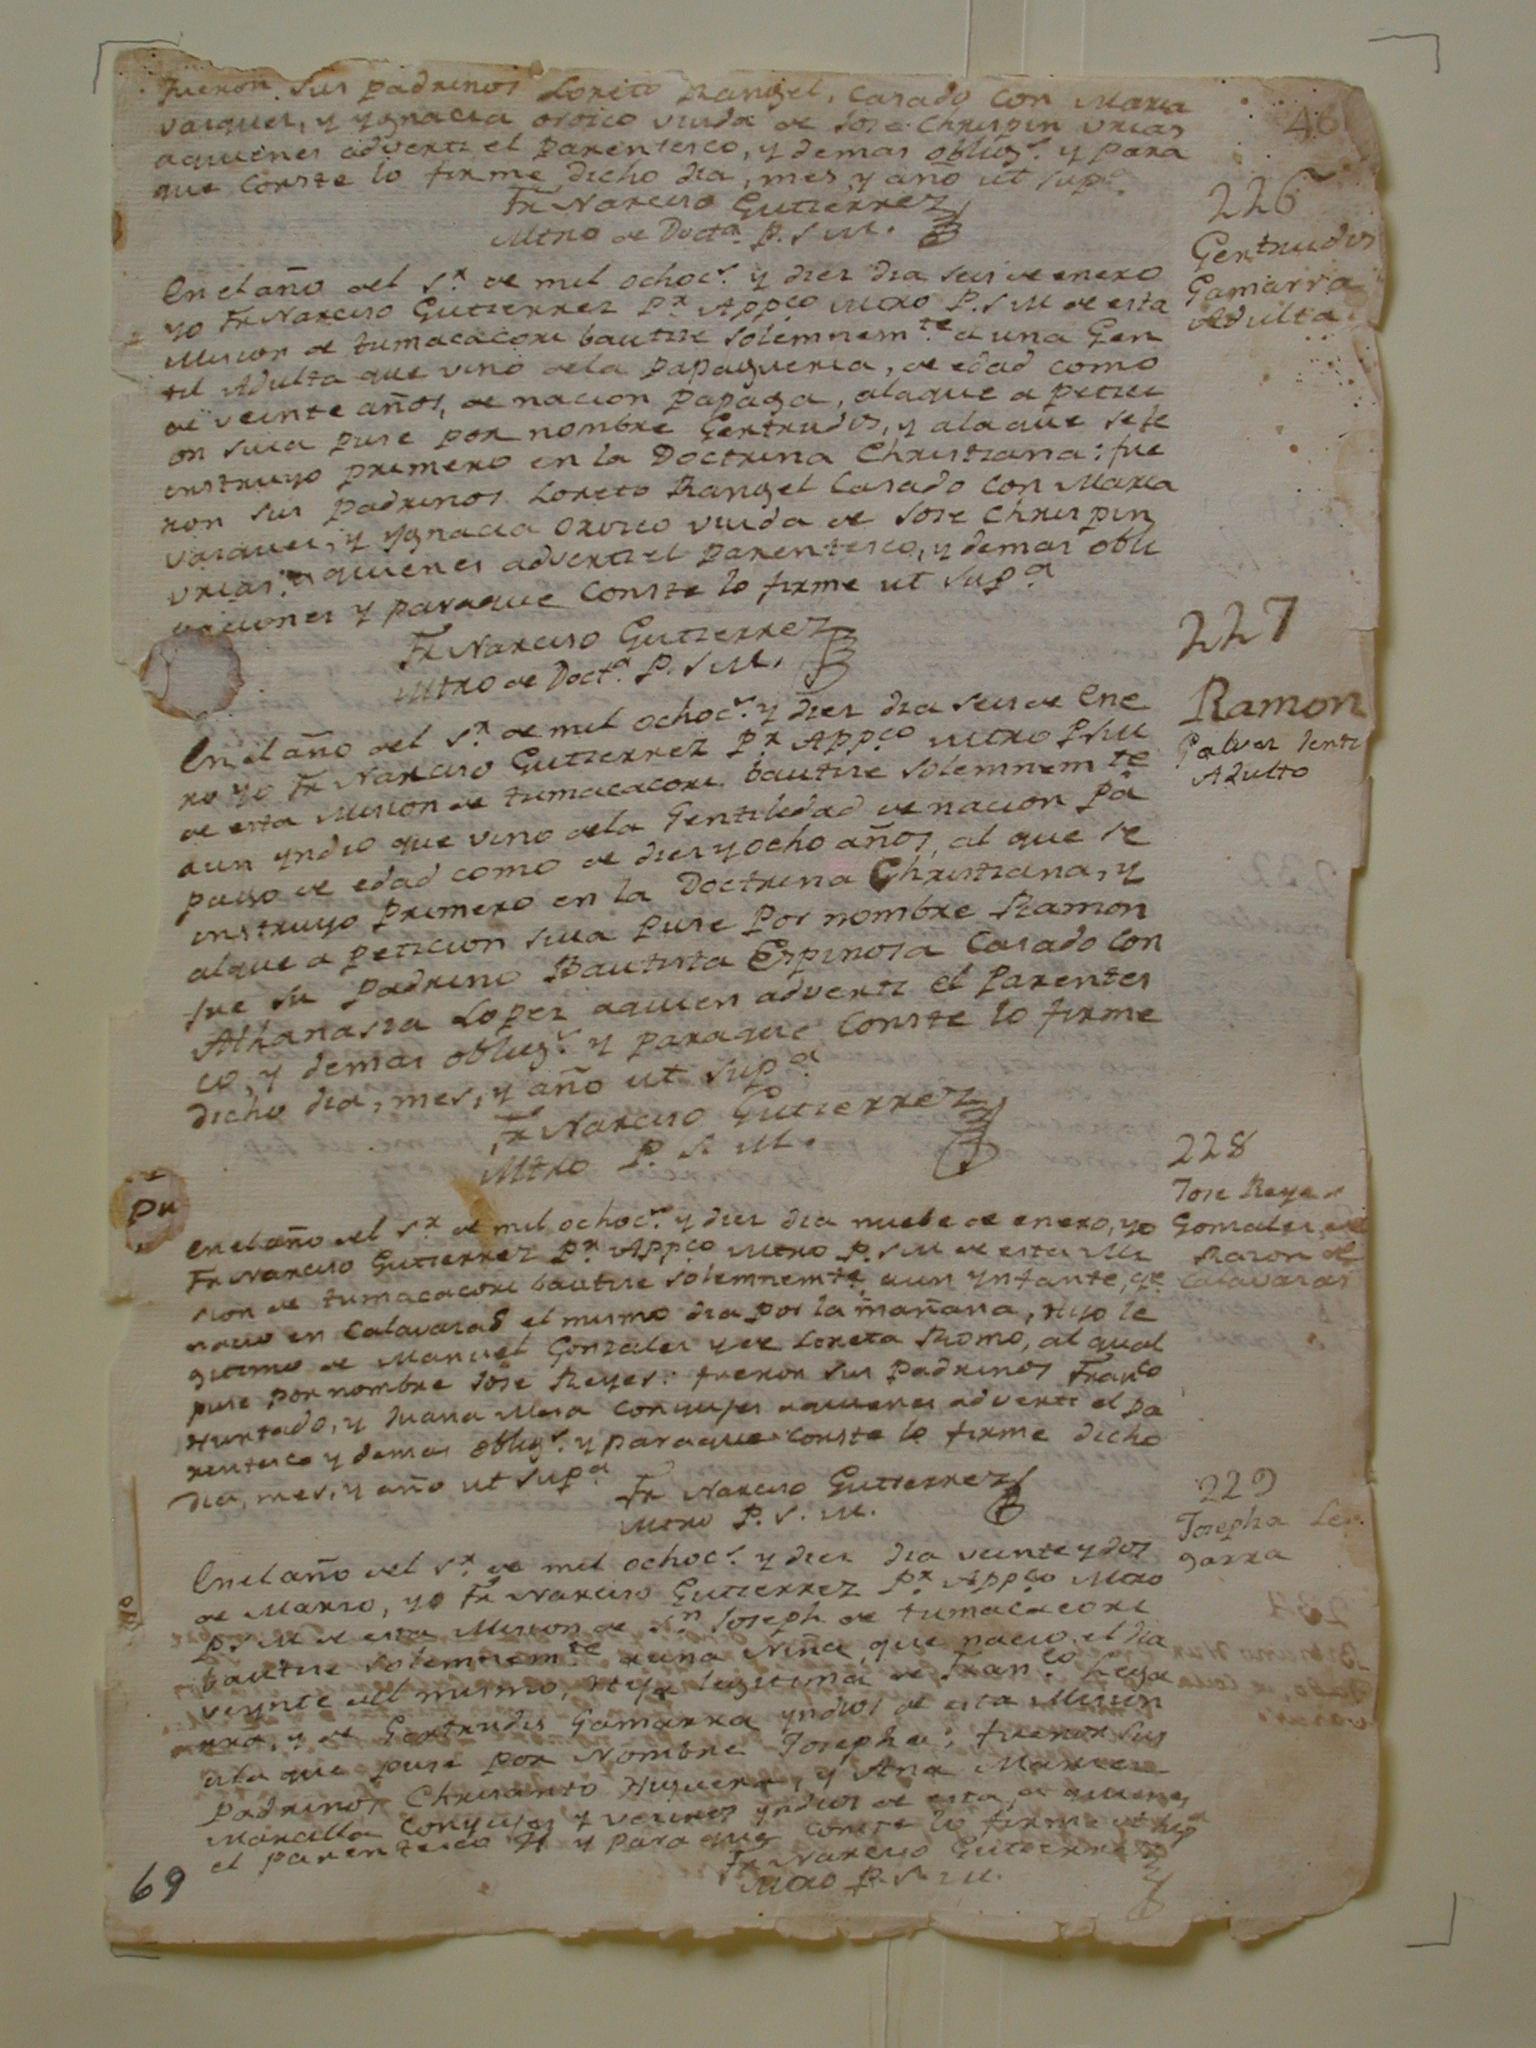 fueron sus padrinos Loreto Rangel, Casado con Maria
Vasques, y Ygnacia Orosco viuda de Jose Chrispin Vrias
aquienes adverti el parentesco, y demas obligs. y para
que conste lo firme dicho dia, mes, y año ut supª.
Fr Narciso Gutierrez
Mtro de Doctª. P. S M.
46
226
Gertrudis
Gamarra
Adulta
En el año del Sr. de mil ochocs. y dies dia seis de enero
yo Fr Narciso Gutierrez Pr. Appco Mtro P. S M de esta
Mision de tumacacori bautise solemnemte. a una Gen
til Adulta que vino dela Papagueria, de edad como
de veinte años, de nacion papaga, alaque a petici
on suia puse por nombre Gertrudis, y ala que se le
instruyo primero en la Doctrina Christiana: fue
ron sus padrinos Loreto Rangel Casado con Maria
Vasques, y Ygnacia Orosco viuda de Jose Chrispin
Vrias: a quienes adverti el parentesco, y demas obli
gaciones y paraque conste lo firme ut supª
Fr Narciso Gutierrez
Mtro de Doctª. P. S M.
227
Ramon
Galves Genti
Adulto
En el año del Sr. de mil ochocs. y dies dia seis de Ene
ro yo Fr Narciso Gutierrez Pr. Appco Mtro P S M
de esta Mision de tumacacori bautise solemnemte
aun yndio que vino dela Gentilidad de nacion Pa
pago de edad como de dies y ocho años, al que se
instruyo primero en la Doctrina Christiana, y
alque a peticion suia puse por nombre Ramon
fue su padrino Bautista Espinosa Casado con
Athanasia Lopez aquien adverti el parentes
co, y demas obligs. y paraque conste lo firme
dicho dia, mes, y año ut supª
Fr Narciso Gutierrez
Mtro P. S. M.
228
Jose Reyes
Gonzales, de
Razon de
Calavazas
Pn
En el año del Sr. de mil ochocs. y dies dia nuebe de enero, yo
Fr Narciso Gutierrez Pr. Appco Mtro P. S M de esta Mi
sion de tumacacori bautise solemnemte, aun ynfante, qe
nacio en Calavazas el mismo dia por la mañana, Hijo le
gitimo de Manuel Gonzales y de Loreta Romo, al qual
puse por nombre Jose Reyes: fueron sus padrinos Franco
Hurtado, y Juana Mesa conyujes aquienes adverti el pa
rentesco y demas obligs. y paraque conste lo firme dicho
dia, mes, y año ut supª
Fr Narciso Gutierrez
Mtro P. S. M.
229
Josepha Le
garra
En el año del Sr. de mil ochocs. y dies dia veinte y dos
de Marzo, yo Fr Narciso Gutierrez Pr. Appco Mtro
P. S M de esta Mision de Sn Joseph de tumacacori
bautise solemnemte auna Niña, que nacio el dia
veynte del mismo, Hija legitima de Franco. Lega
rra, y de Gertrudis Gamarra yndios de esta Mision
ala que puse por Nombre Josepha: fueron sus
padrinos Chrisanto Higuera, y Ana Maria
Marcilla conyujes y vecinos yndios de esta, a quienes
el parentesco y para que conste lo firme ut supª
Fr Narciso Gutierrez
Mtro P. S. M.
69